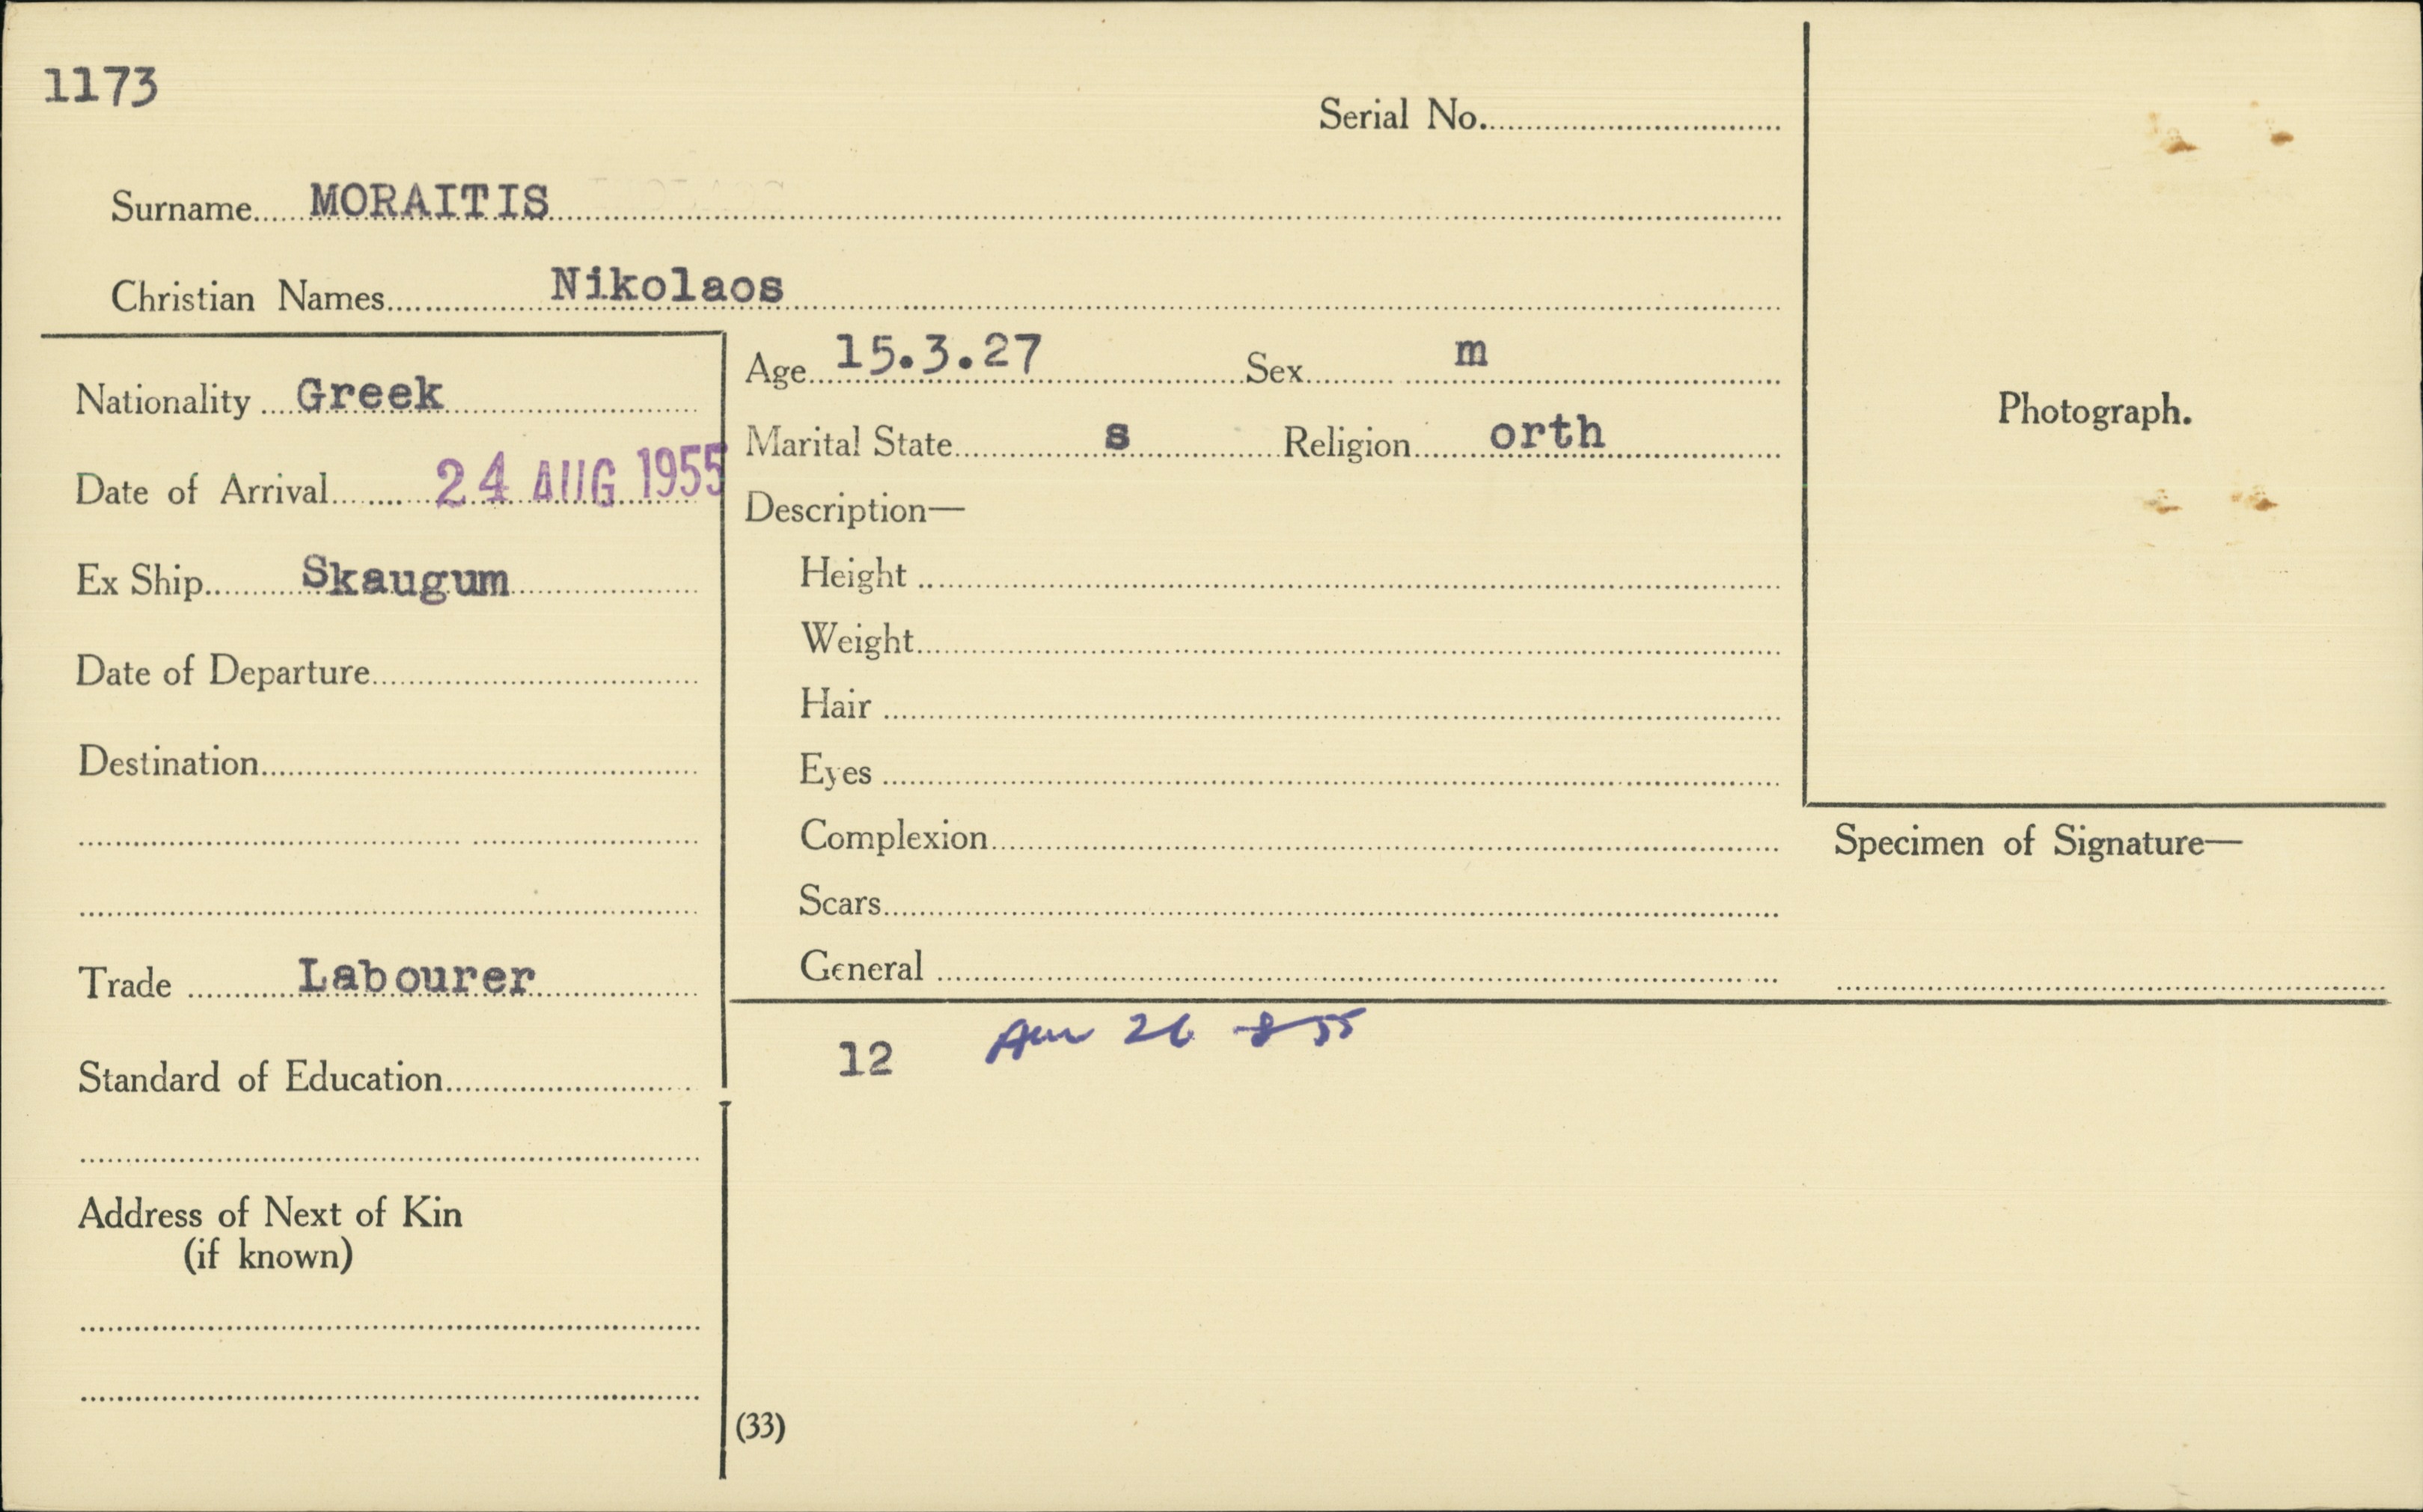 1173
Serial No.
Surname MORAITIS
Christian Names Nikolaos
Nationality Greek
Date of Arrival 24 AUG 1955
Ex Ship Skaugum
Date of Departure
Destination
Trade Labourer
Standard of Education
Address of Next of Kin
(if known)
Age 15.3.27 Sex m
Marital State s Religion orth
Description—
Height
Weight
Hair
Eyes
Complexion
Scars
General
12 26 8 55
(33)
Photograph.
Specimen of Signature—